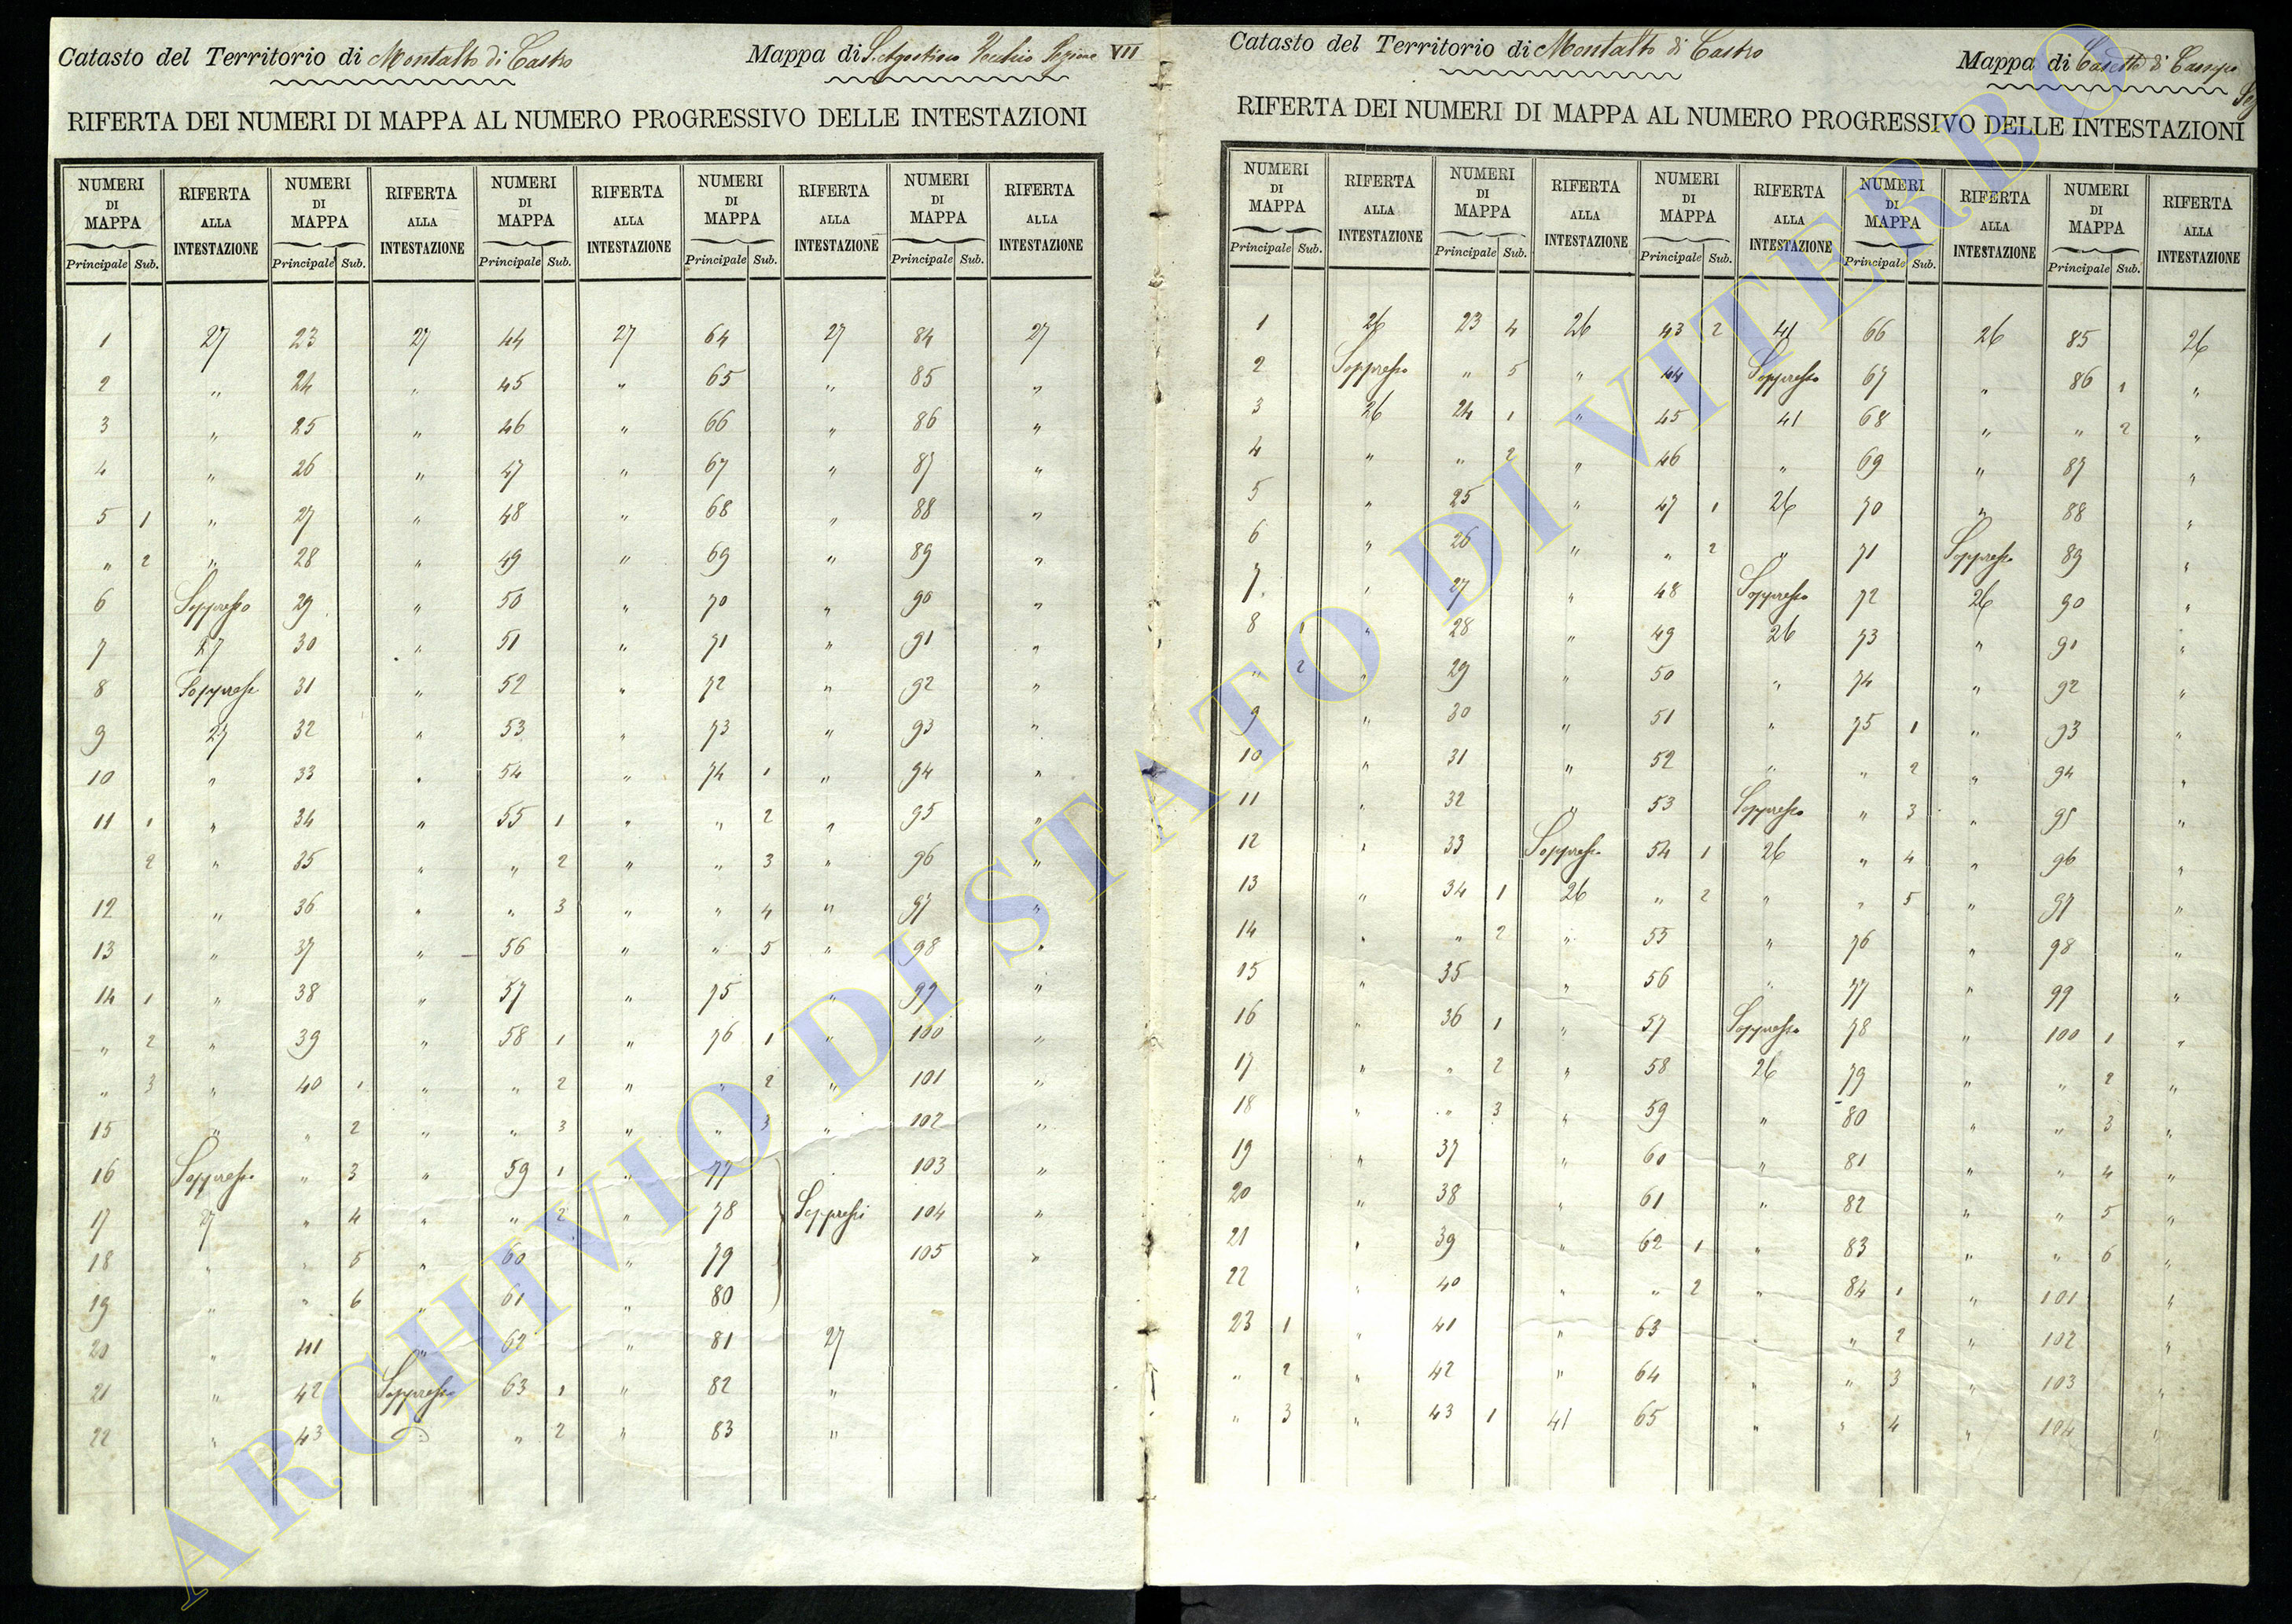 Catasto del Territorio di Montalto di Castro Mappa di S. Agostino Vecchio Sezione VII
RIFERTA DEI NUMERI DI MAPPA AL NUMERO PROGRESSIVO DELLE INTESTAZIONI
NUMERI DI MAPPA RIFERTA ALLA INTESTAZIONE NUMERI DI MAPPA RIFERTA ALLA INTESTAZIONE NUMERI DI MAPPA RIFERTA ALLA INTESTAZIONE NUMERI DI MAPPA RIFERTA ALLA INTESTAZIONE NUMERI DI MAPPA RIFERTA ALLA INTESTAZIONE
Principale Sub. Principale Sub. Principale Sub. Principale Sub. Principale Sub.
1 27 23 27 44 27 64 27 84 27
2 „ 24 „ 45 „ 65 „ 85 „
3 „ 25 „ 46 „ 66 „ 86 „
4 „ 26 „ 47 „ 67 „ 87 „
5 1 „ 27 „ 48 „ 68 „ 88 „
„ 2 „ 28 „ 49 „ 69 „ 89 „
6 Soppresso 29 „ 50 „ 70 „ 90 „
7 27 30 „ 51 „ 71 „ 91 „
8 Soppresso 31 „ 52 „ 72 „ 92 „
9 27 32 „ 53 „ 73 „ 93 „
10 „ 33 „ 54 „ 74 1 „ 94 „
11 1 „ 34 „ 55 1 „ „ 2 „ 95 „
2 „ 35 „ „ 2 „ „ 3 „ 96 „
12 „ 36 „ „ 3 „ „ 4 „ 97 „
13 „ 37 „ 56 „ „ 5 „ 98 „
14 1 „ 38 „ 57 „ 75 „ 99 „
„ 2 „ 39 „ 58 1 „ 76 1 „ 100 „
„ 3 „ 40 1 „ „ 2 „ „ 2 „ 101 „
15 „ „ 2 „ „ 3 „ „ 3 „ 102 „
16 Soppresso „ 3 „ 59 1 „ 77 103 „
17 27 „ 4 „ „ 2 „ 78 Soppressi 104 „
18 „ „ 5 „ 60 „ 79 105 „
19 „ „ 6 „ 61 „ 80
20 „ 41 „ 62 „ 81 27
21 „ 42 Soppresso 63 1 „ 82 „
22 „ 43 „ 2 „ 83 „
Catasto del Territorio di Montalto di Castro Mappa di Casetta di Campo
RIFERTA DEI NUMERI DI MAPPA AL NUMERO PROGRESSIVO DELLE INTESTAZIONI
NUMERI DI MAPPA RIFERTA ALLA INTESTAZIONE NUMERI DI MAPPA RIFERTA ALLA INTESTAZIONE NUMERI DI MAPPA RIFERTA ALLA INTESTAZIONE NUMERI DI MAPPA RIFERTA ALLA INTESTAZIONE NUMERI DI MAPPA RIFERTA ALLA INTESTAZIONE
Principale Sub. Principale Sub. Principale Sub. Principale Sub. Principale Sub.
1 26 23 4 26 43 2 41 66 26 85 26
2 Soppresso „ 5 „ 44 Soppresso 67 „ 86 1 „
3 26 24 1 „ 45 41 68 „ „ 2 „
4 „ „ 2 „ 46 „ 69 „ 87 „
5 „ 25 „ 47 1 26 70 „ 88 „
6 „ 26 „ „ 2 „ 71 Soppresso 89 „
7 „ 27 „ 48 Soppresso 72 26 90 „
8 1 „ 28 „ 49 26 73 „ 91 „
„ 2 „ 29 „ 50 „ 74 „ 92 „
9 „ 30 „ 51 „ 75 1 „ 93 „
10 „ 31 „ 52 „ „ 2 „ 94 „
11 „ 32 „ 53 Soppresso „ 3 „ 95 „
12 „ 33 Soppresso 54 1 26 „ 4 „ 96 „
13 „ 34 1 26 „ 2 „ „ 5 „ 97 „
14 „ „ 2 „ 55 „ 76 „ 98 „
15 „ 35 „ 56 „ 77 „ 99 „
16 „ 36 1 „ 57 Soppresso 78 „ 100 1 „
17 „ „ 2 „ 58 26 79 „ „ 2 „
18 „ „ 3 „ 59 „ 80 „ „ 3 „
19 „ 37 „ 60 „ 81 „ „ 4 „
20 „ 38 „ 61 „ 82 „ „ 5 „
21 „ 39 „ 62 1 „ 83 „ „ 6 „
22 „ 40 „ „ 2 „ 84 1 „ 101 „
23 1 „ 41 „ 63 „ „ 2 „ 102 „
„ 2 „ 42 „ 64 „ „ 3 „ 103 „
„ 3 „ 43 1 41 65 „ „ 4 „ 104 „
ARCHIVIO DI STATO DI VITERBO